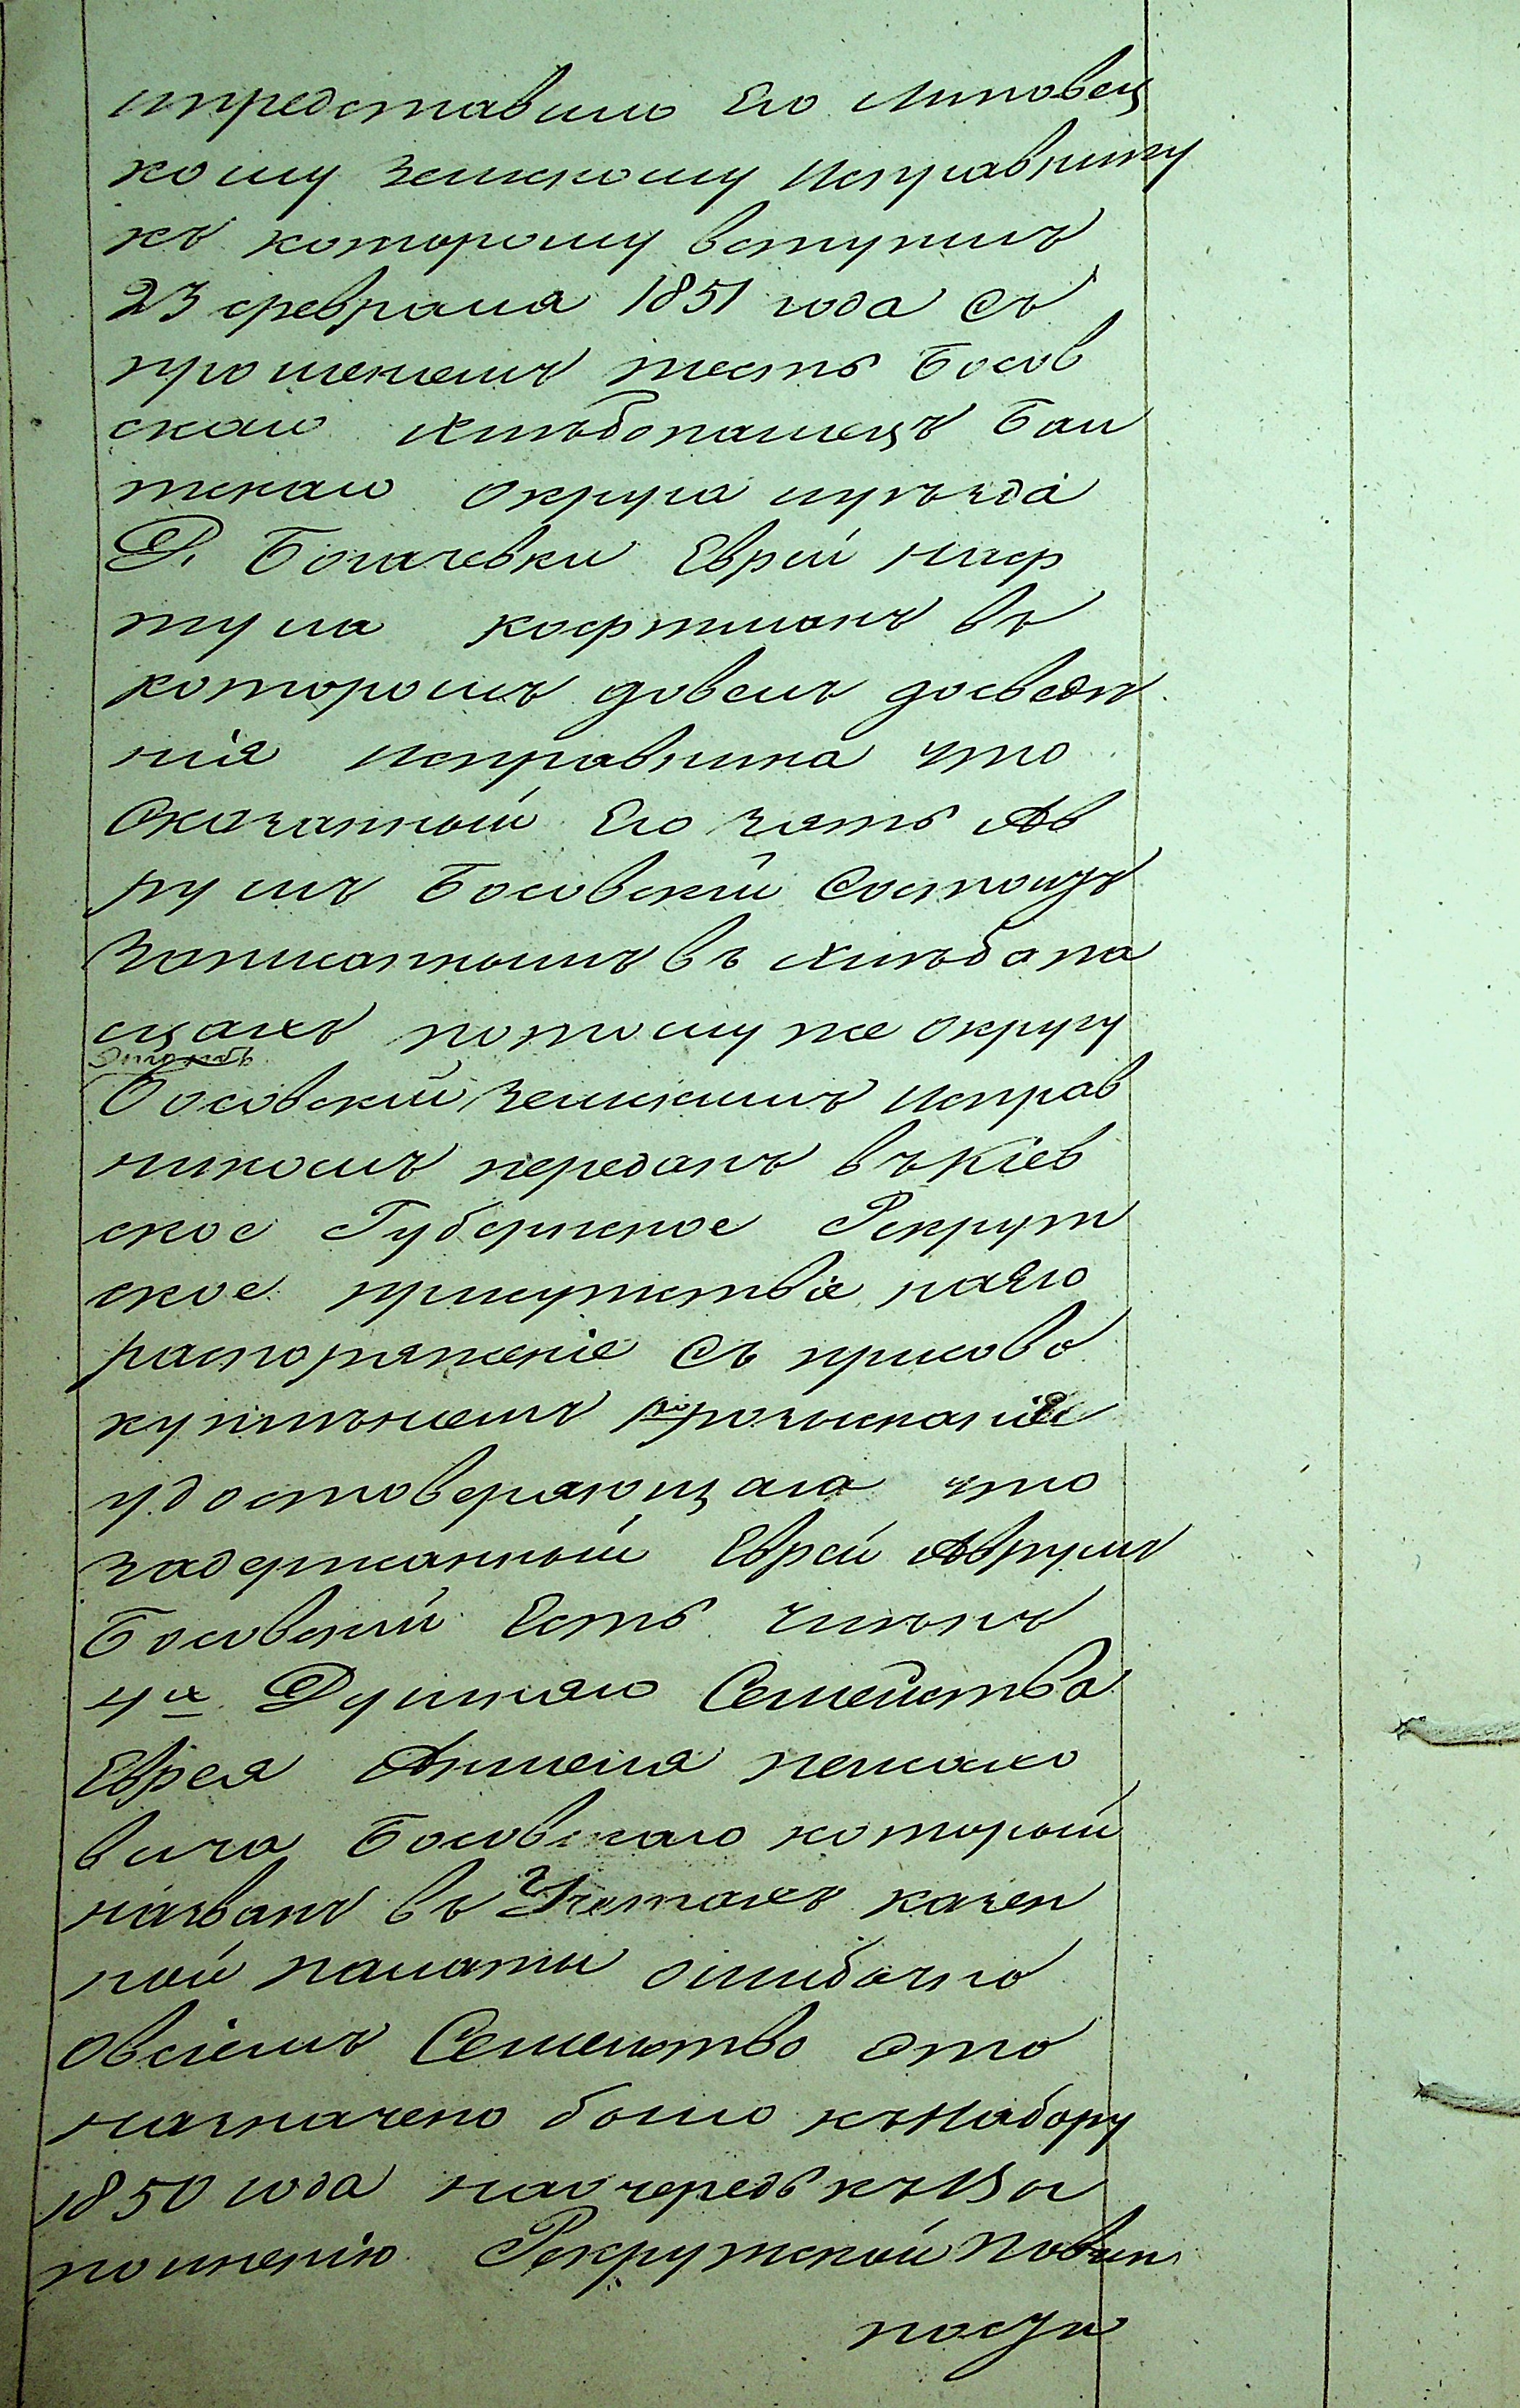 ипредставило Его Липовец
кому земскому Исправнику
къ которому вступилъ
23 февраля 1851 года Съ
прошениемъ тесть Босов
скаго хлебопашецъ Бал
тскаго округа иуезда
Д. Богачевки Еврей Наф
тула кофтманъ въ
которомъ довелъ досведе
нія Исправника что
Оказанный Его зять Ав
румъ Босовский Состоитъ
Записаннымъ въ хлебопа
щахъ потомуже округу
Этотъ
Босовский Земскимъ Исправ
никомъ переданъ въКіев
ское Губернское Рекрут
ское присутствіе наЕго
распоряженіе Съ присово
купленіемъ розыскания
удостоверяющаго что
задержанный Еврей Аврумъ
Босовский Есть членъ
4хъ Душнаго Семейства
Еврея Аншеля
вича Босовскаго который
названъ въ Учетахъ казен
ной палаты ошибочно
Овсіемъ Семейство это
назначено было къНабору
1850 года наочередь къВы
полненію Рекрутской Повин
ности